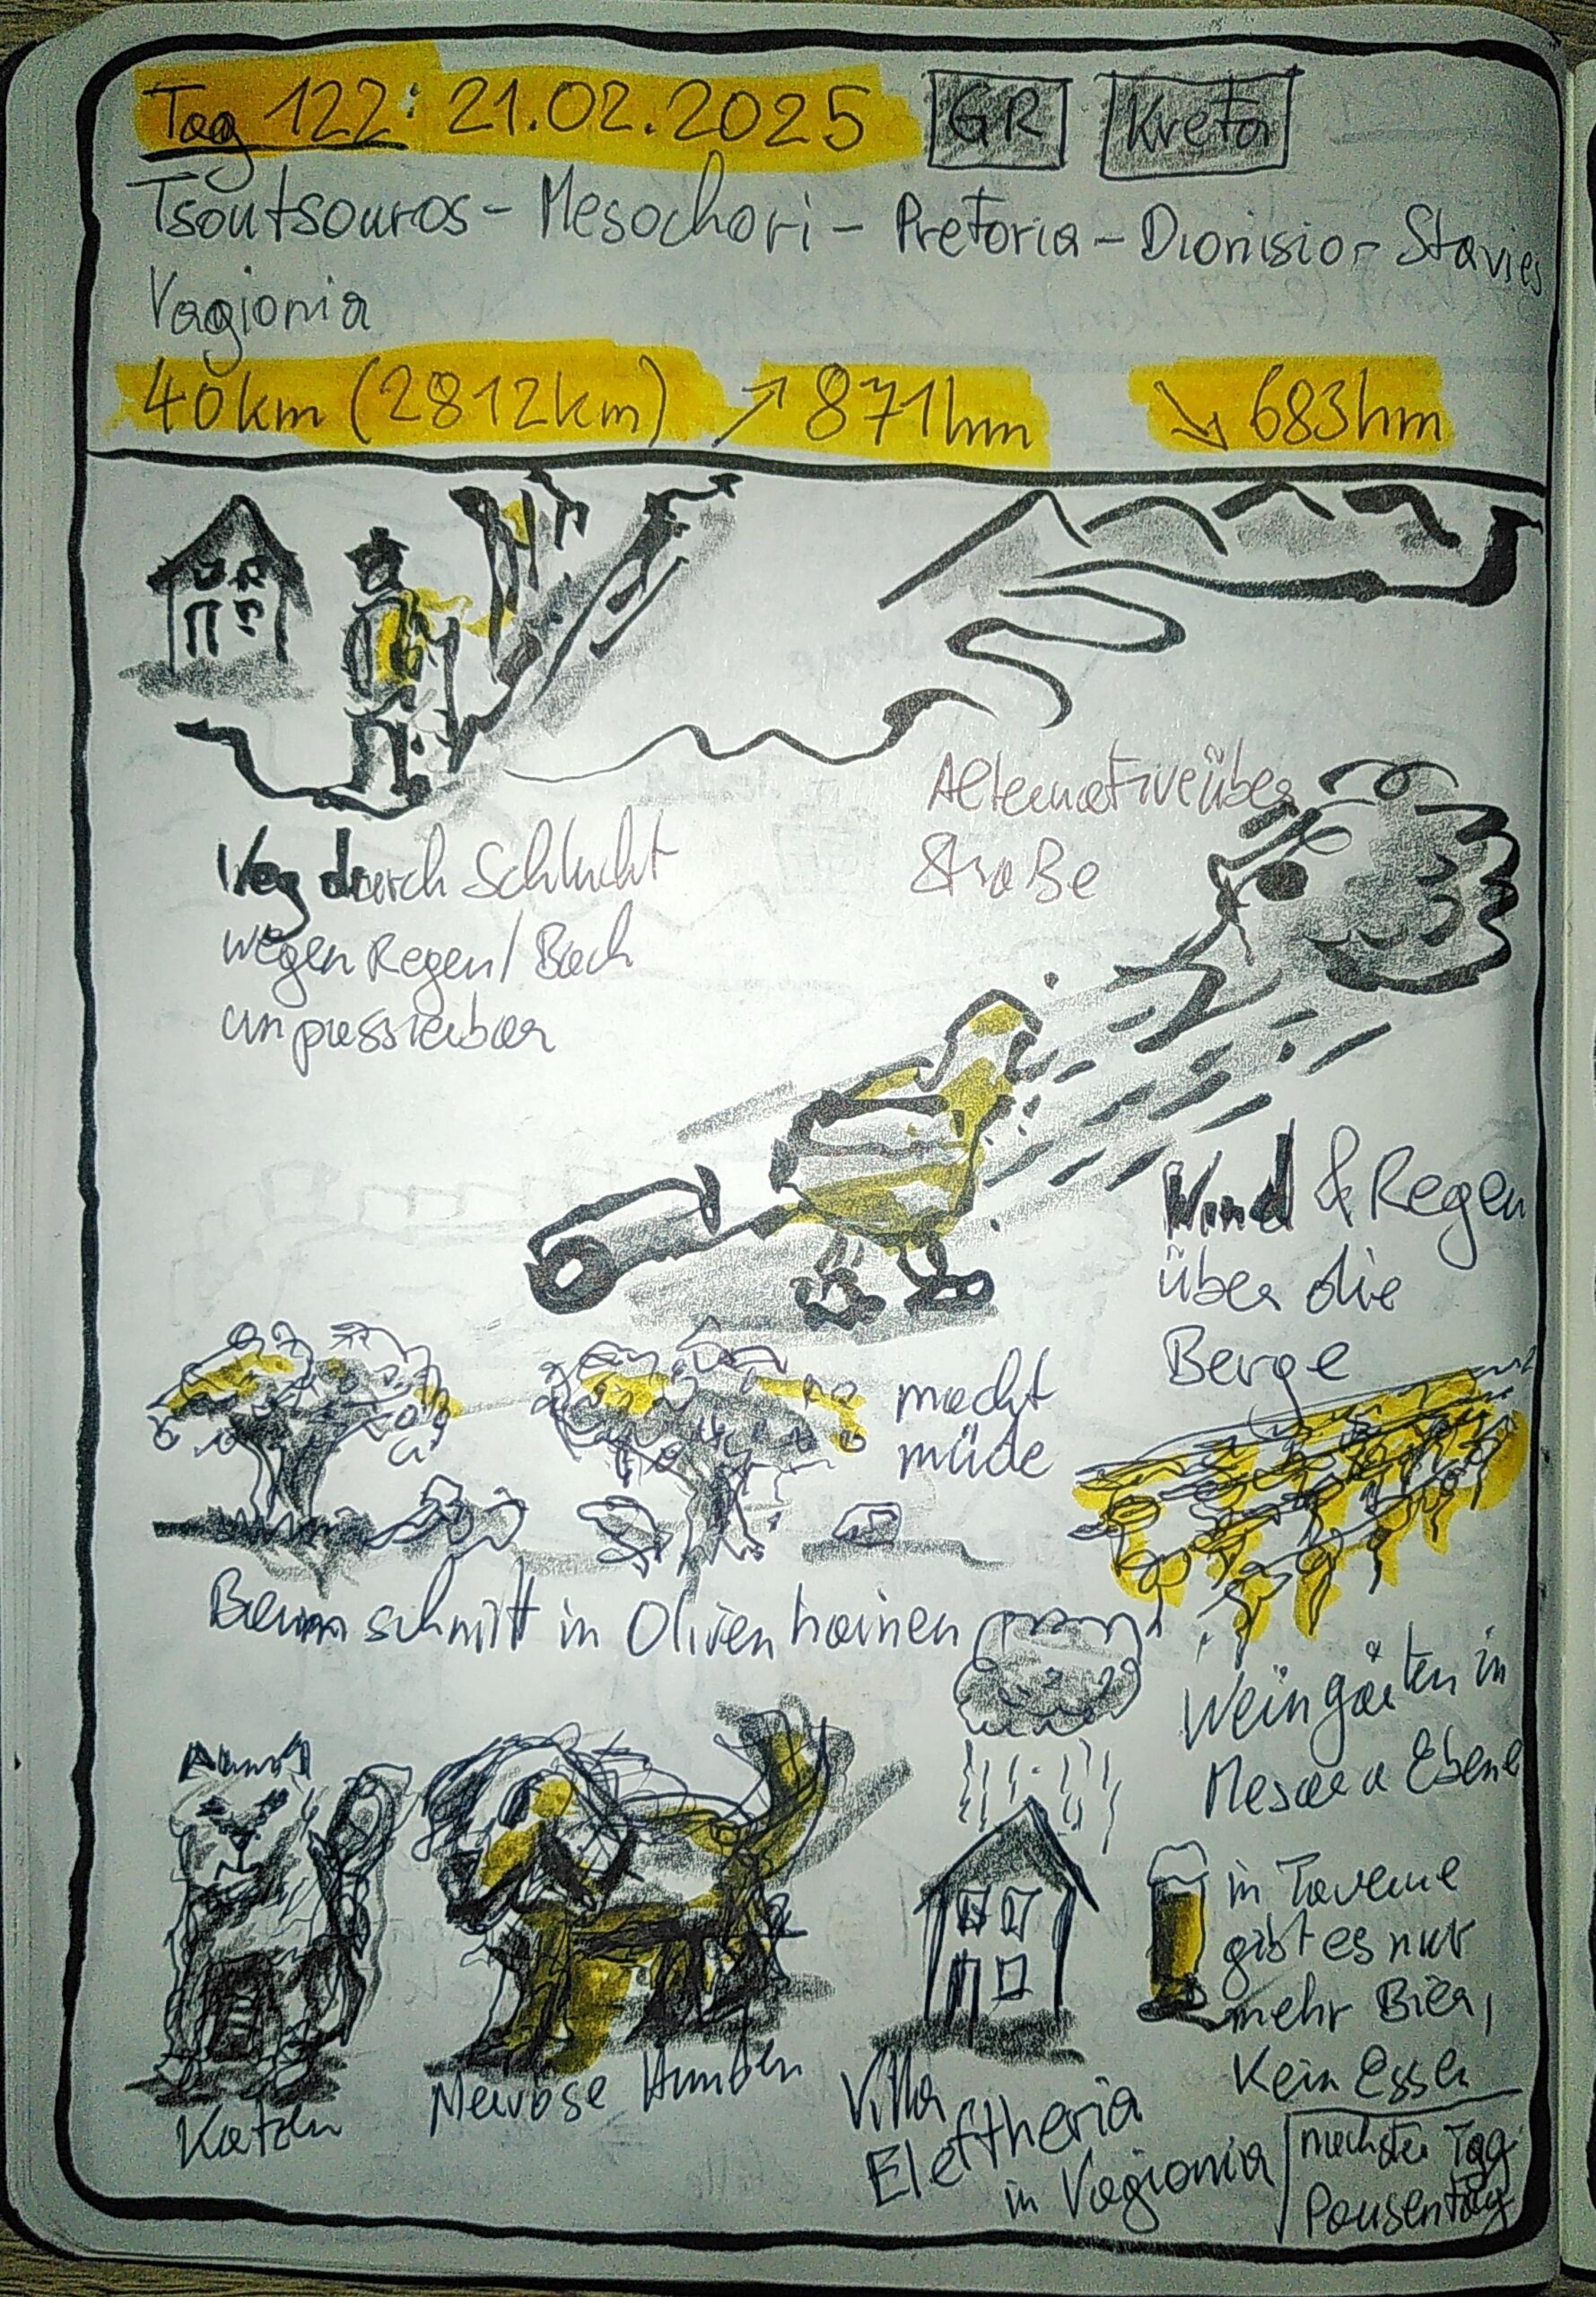 Tag 122: 21.02.2025 GR Kreta
Tsoutsouros - Mesochori - Pretoria - Dionisio - Stavies
Vagionia
40km (2812km) ↗ 871hm ↘ 683hm
Weg durch Schlucht
wegen Regen / Bach
unpassierbar
Alternative über
Straße
Wind & Regen
über die
Berge
macht
müde
Baumschnitt in Olivenhainen
Weingärten in
Mesara Ebene
Katzen
Nervöse Hunden
Villa
Eleftheria
in Vagionia
in Taverne
gibt es nur
mehr Bier,
Kein Essen
nächster Tag
Pausentag